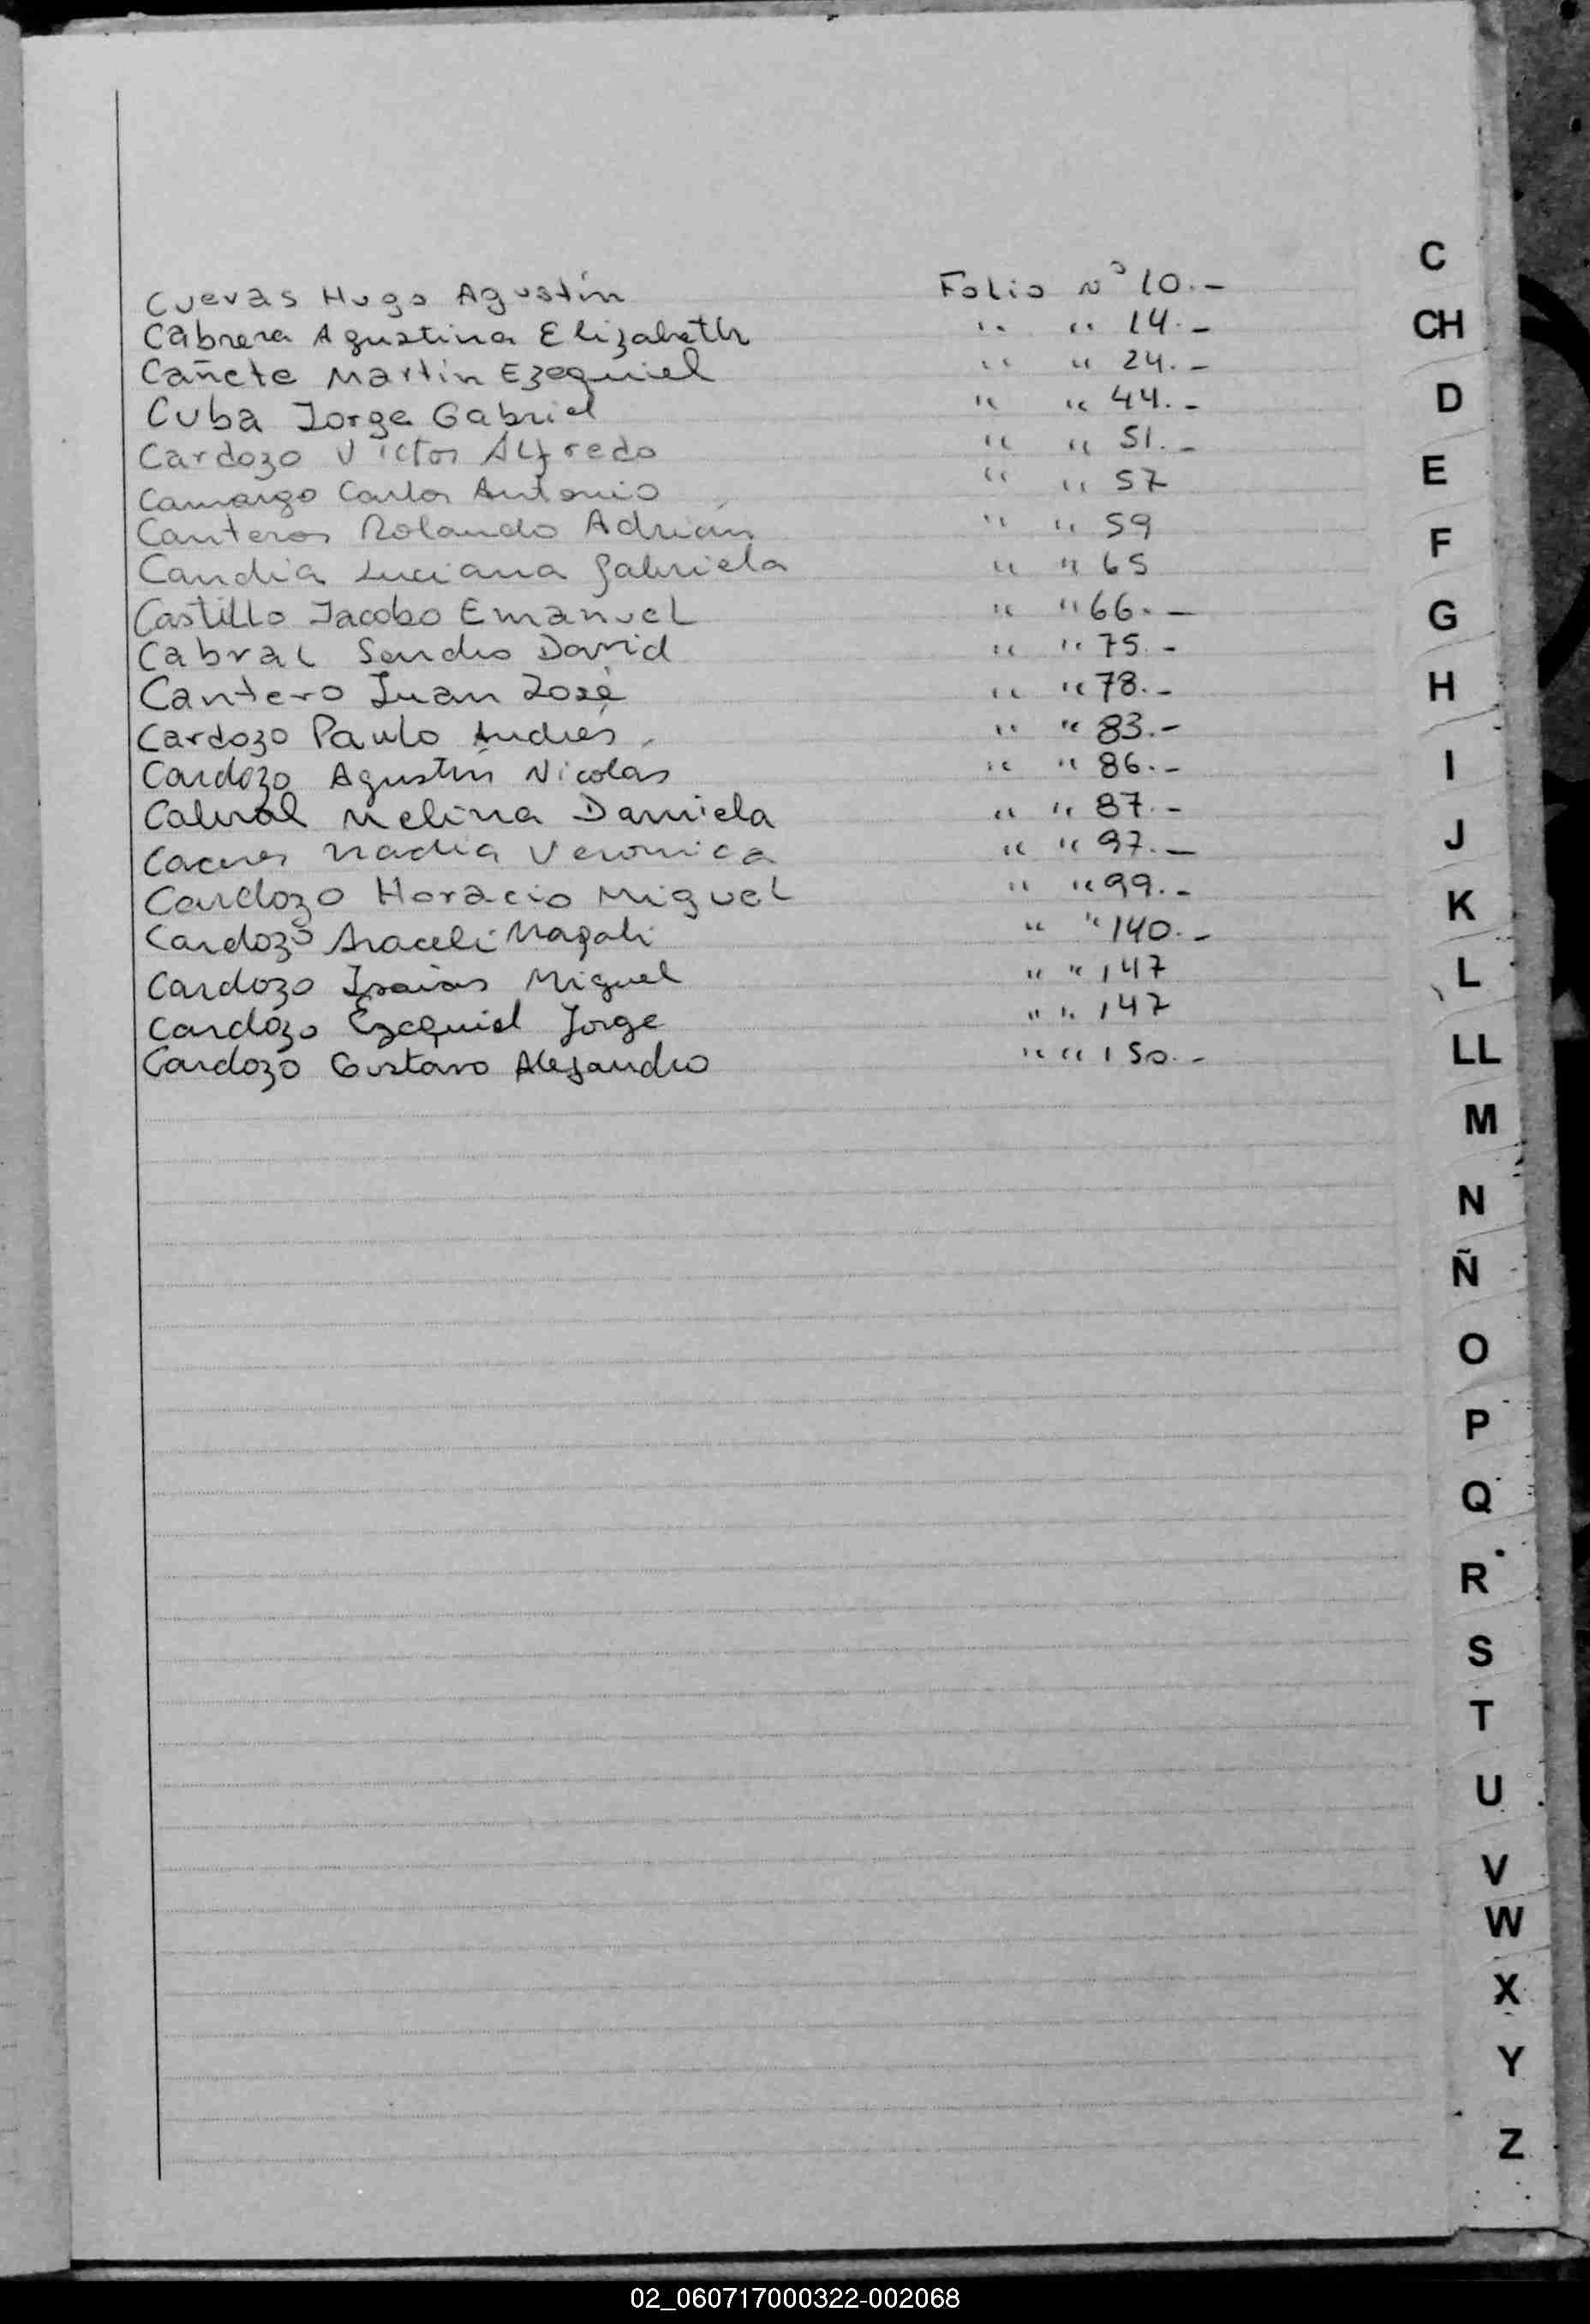 Cuevas Hugo Agustín Folio Nº 10.-
Cabrera Agustina Elizabeth " " 14.-
Cañete Martin Ezequiel " " 24.-
Cuba Jorge Gabriel " " 44.-
Cardozo Victor Alfredo " " 51.-
Camargo Carlos Antonio " " 57
Canteros Rolando Adrián " " 59
Candia Luciana Gabriela " " 65
Castillo Jacobo Emanuel " " 66.-
Cabral Sandro David " " 75.-
Cantero Juan José " " 78.-
Cardozo Paulo Andrés " " 83.-
Cardozo Agustín Nicolas " " 86.-
Cabral Melina Daniela " " 87.-
Caceres Nadia Veronica " " 97.-
Cardozo Horacio Miguel " " 99.-
Cardozo Araceli Magali " " 140.-
Cardozo Isaias Miguel " " 147
Cardozo Ezequiel Jorge " " 147
Cardozo Gustavo Alejandro " " 150.-
C
CH
D
E
F
G
H
I
J
K
L
LL
M
N
Ñ
O
P
Q
R
S
T
U
V
W
X
Y
Z
02_060717000322-002068